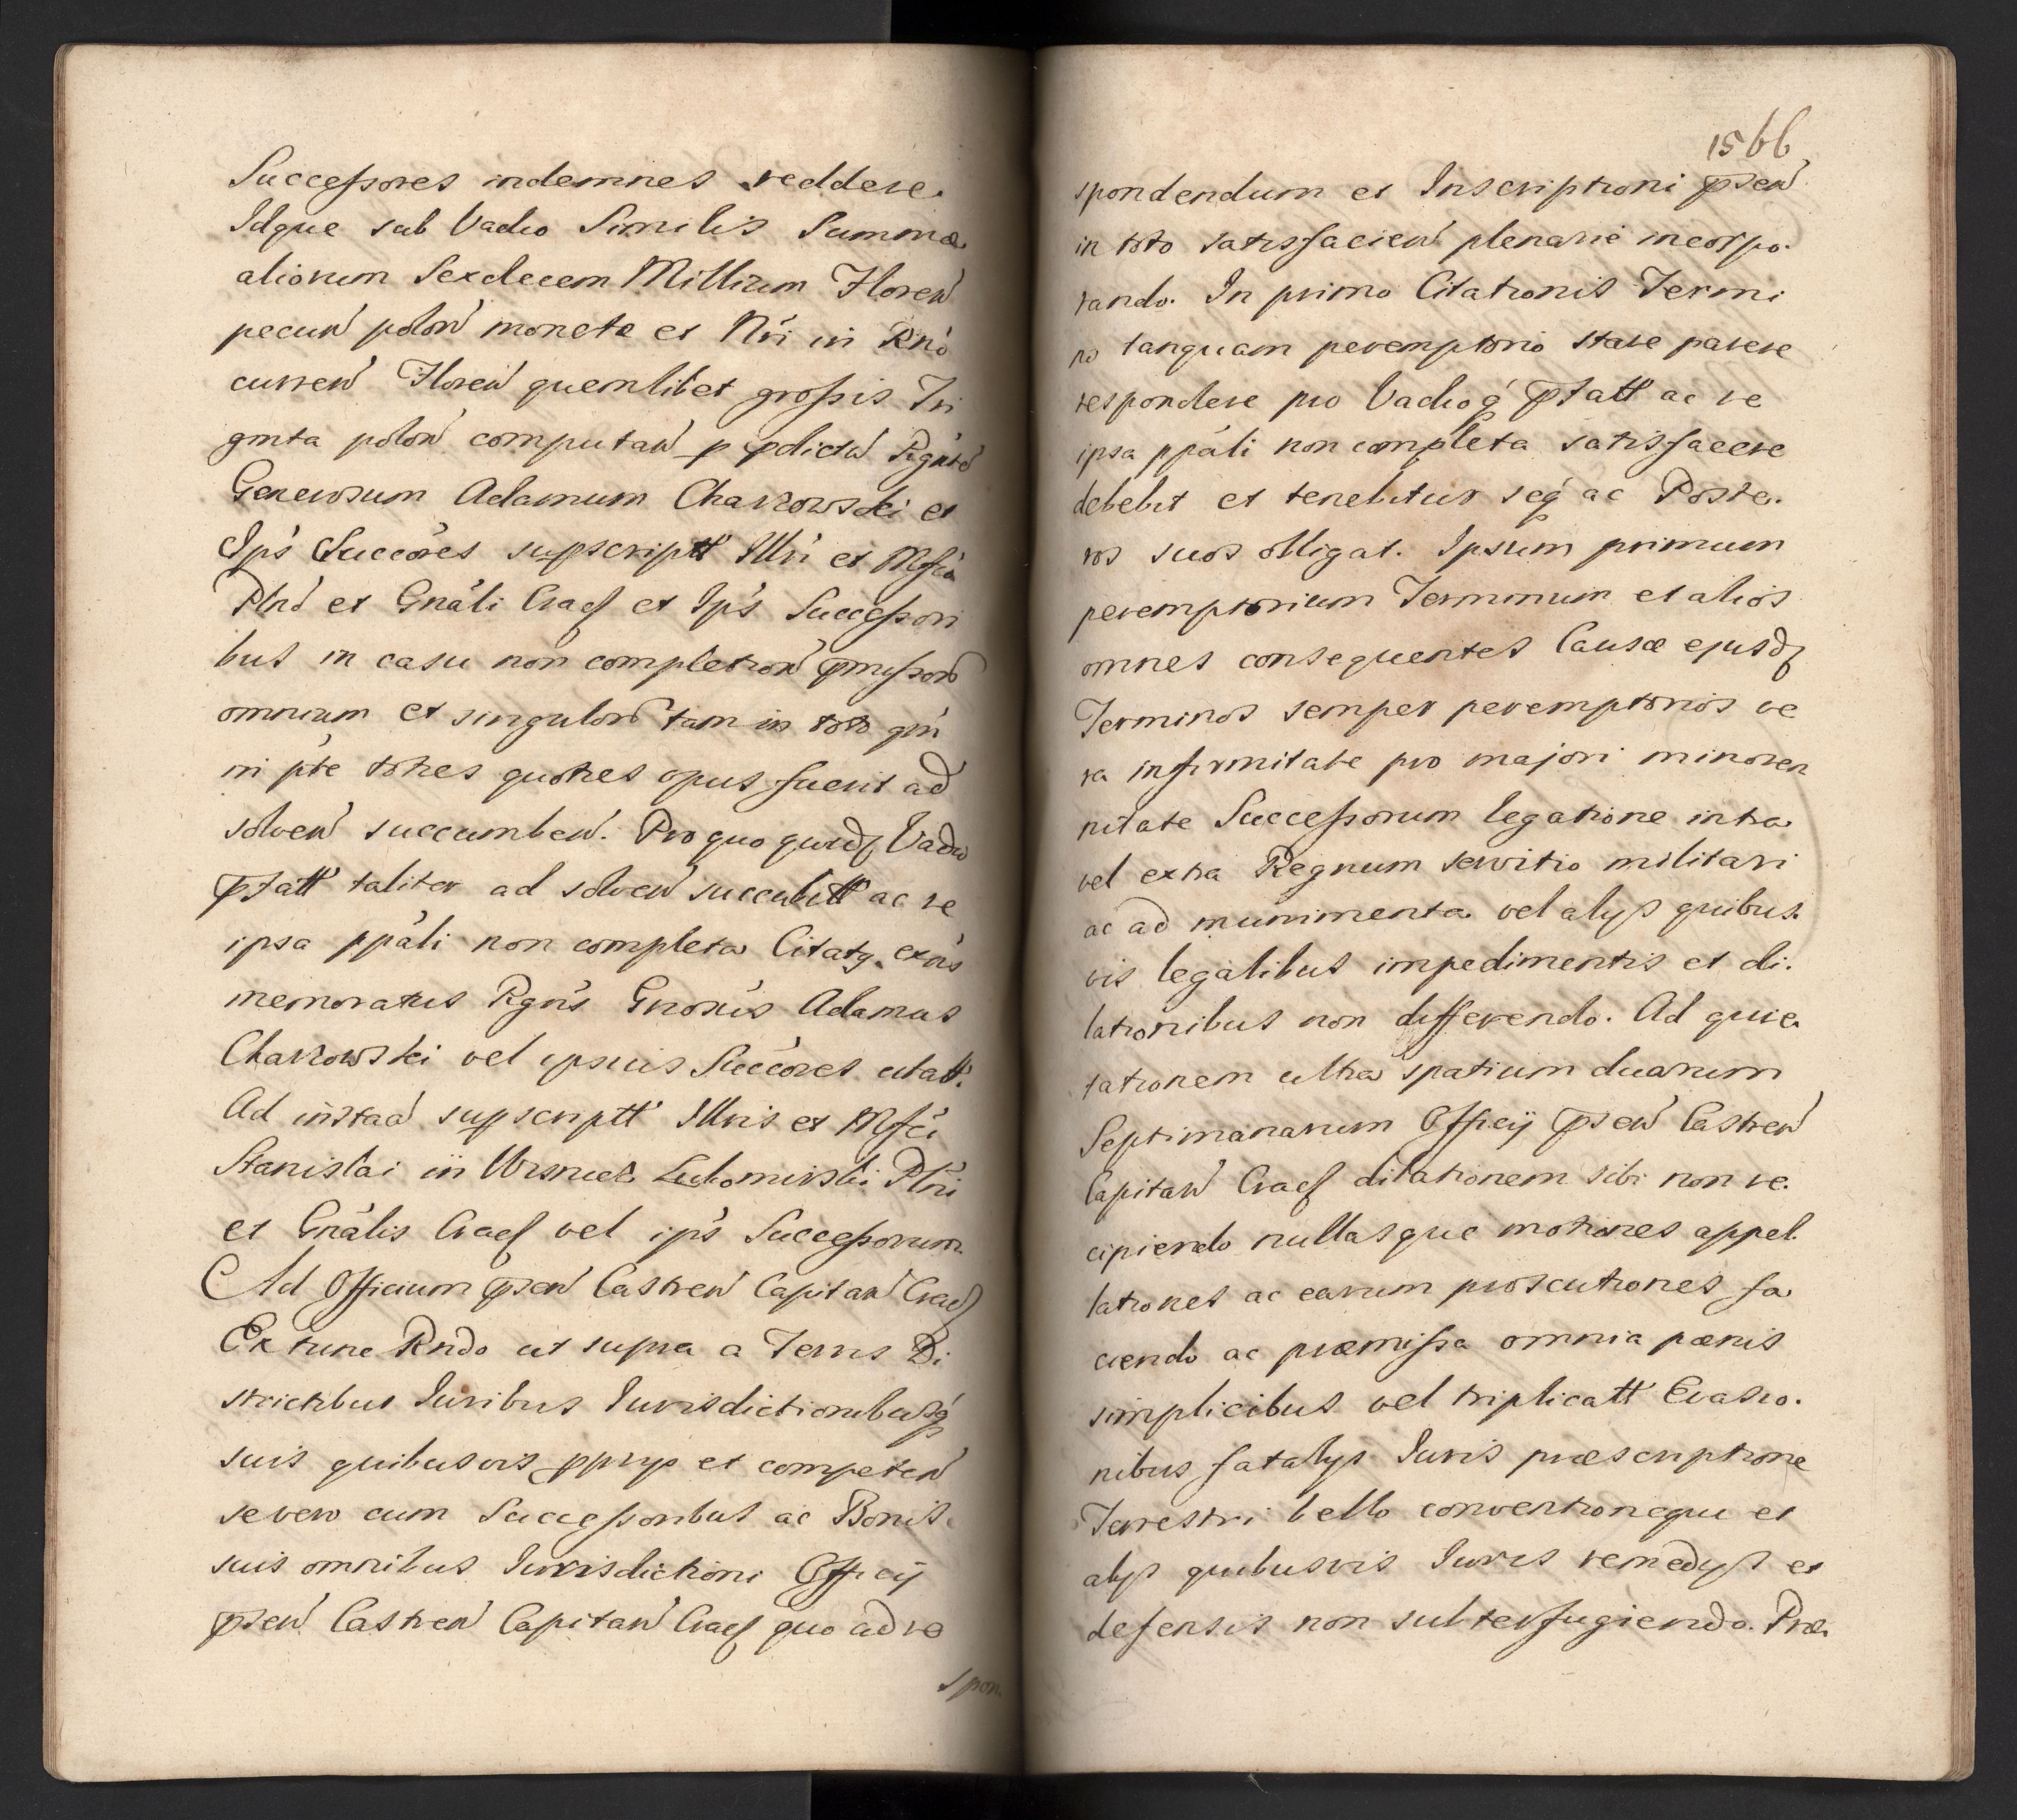 Successores indemnes reddere.
Idque sub Vadio Similis Summæ
aliorum Sexdecem Millium Floreń
pecuń poloń moneta et Nri in Rno
curreń Floreń quemlibet grossis Tri
ginta poloń computań p pdictũ Rgnte
Generosum Adamum Charzowski et
Ips Succores supscriptt Illri et Mfco
Plnó et Gnáli Cracs et Ips Successori
bus in casu non completioń pmissorũ
omnium et singulorũ tam in toto qm
in pte toties quoties opus fuerit ad
solveń succumbeń. Pro quo quidȩ Vadio
pstatt taliter ad solveń succubitt ac re
ipsa ppáli non completa Citatq. extús
memoratus Rgns Gnosus Adamus
Charzowski vel ipsius Succores citatt.
Ad instaã supscriptt Illris et Mfci
Stanislai in Wisnicz Lubomirski Plni
et Gnális Cracs vel ips Successorum
Ad Officium pseń Castreń Capitań Cracs
Ex tunc Rndo ut supra a Terris Di
strictibus Iuribus Iurisdictionibusq
suis quibusvis pprijs et competeń
se vero cum Successoribus ac Bonis
suis omnibus Iurisdictioni Officij
pseń Castreń Capitań Cracs quo ad re
spon.
1566
spondendum et Inscriptioni pseń
in toto satisfacień plenarie incorpo.
rando. In primo Citationis Termi
no tanquam peremptorio stare parere
respondere pro Vadioq pstatt ac re
ipsa ppáli non completa satisfacere
debebit et tenebitur seq ac Poste.
ros suos obligat. Ipsum primum
peremptorium Terminum et alios
omnes consequentes Causæ ejusdȩ
Terminos semper peremptorios ve
ra infirmitate pro majori minoren
nitate Successorum legatione intra
vel extra Regnum servitio militari
ac ad munimenta vel alijs quibus.
vis legalibus impedimentis et di.
lationibus non differendo. Ad quie.
tationem ultra spatium duarum
Septimanarum Officij pseń Castreń
Capitań Cracs dilationem sibi non re.
cipiendo nullasque motiones appel
lationes ac earum prosecutiones fa
ciendo ac præmissa omnia pænis
simplicibus vel triplicatt Evasio.
nibus fatalijs Iuris præscriptione
Terrestri bello conventioneque et
alijs quibusvis Iuris remedijs et
defensis non subterfugiendo. Præ.